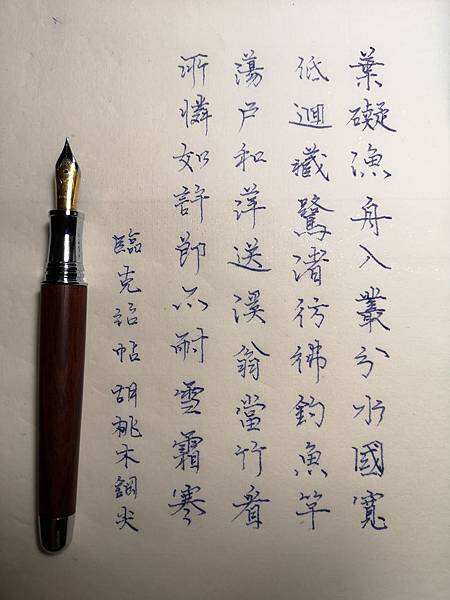 葉礙漁舟入叢分水國寬
低迴藏鷺渚彷彿釣魚竿
蕩戶和萍送溪翁當竹看
所憐如許節不耐雪霜寒
臨克詒帖胡桃木鋼尖